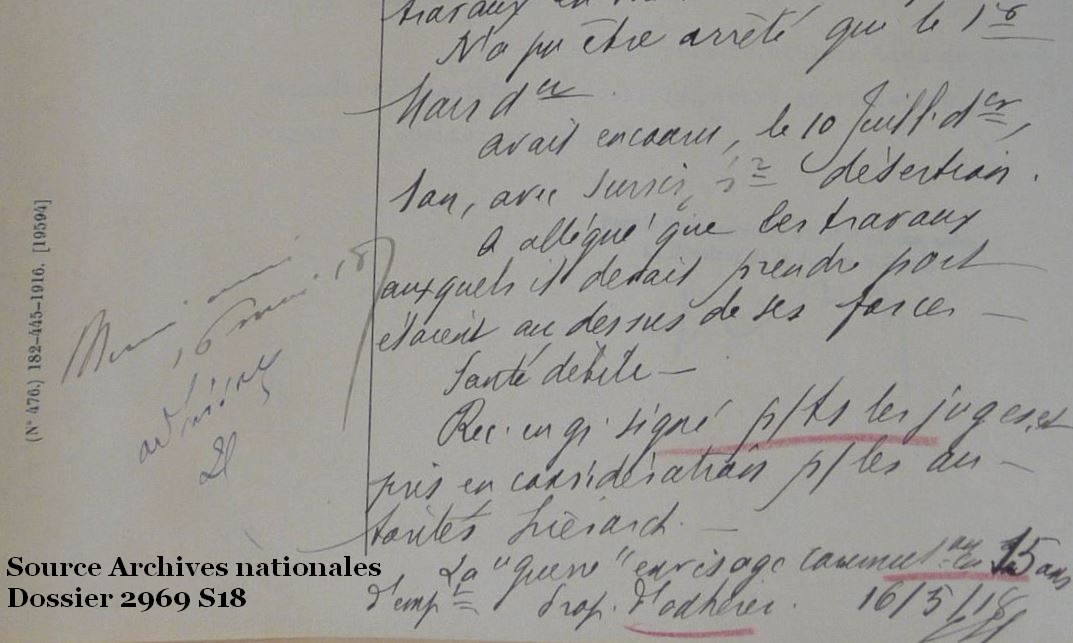 travaux en
N'a pu être arrêté que le 1er
Mars der
avait encouru, le 10 Juill. der,
1 an, avec sursis, pr désertion.
A allégué que les travaux
auxquels il devait prendre part
étaient au dessus de ses forces —
Santé débile —
Rec. en gr. signé p/ ts les juges, et
pris en considération p/ les au-
torités hiérarch. —
La "Guerre" envisage commut. en 15 ans
d'emp. Prop. d'adhérer. 16/5/18
16 mai 18
(N° 476.) 182-445-1916. [19594]
Source Archives nationales
Dossier 2969 S18